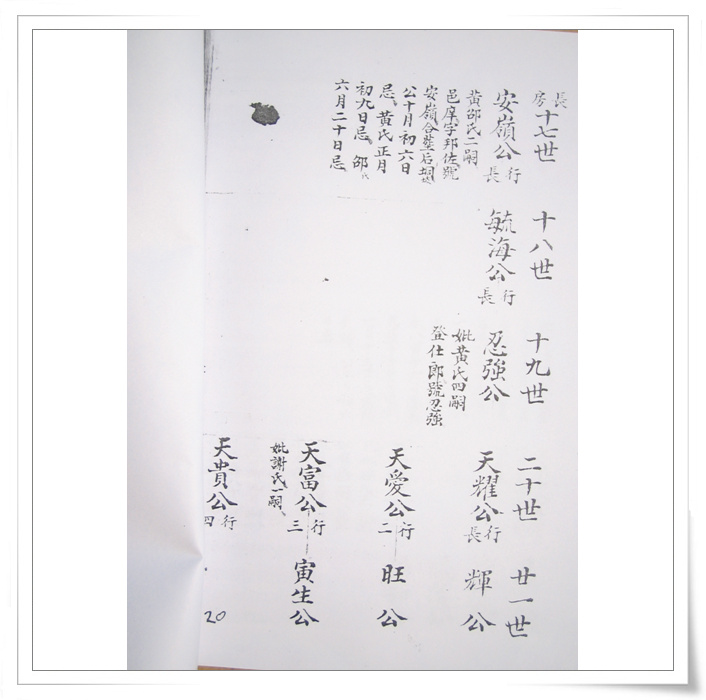 長房
十七世
安嶺公
行長
黃邵氏二嗣
邑庠字邦佐號
安嶺合塟后埧
公十月初六日
忌黃氏正月
初九日忌邵氏
六月二十日忌
十八世
毓海公
行長
十九世
忍強公
妣黃氏四嗣
登仕郎號忍強
二十世
天耀公
行長
天愛公
行二
天富公
行三
妣謝氏一嗣
天貴公
行四
廿一世
輝公
旺公
寅生公
20